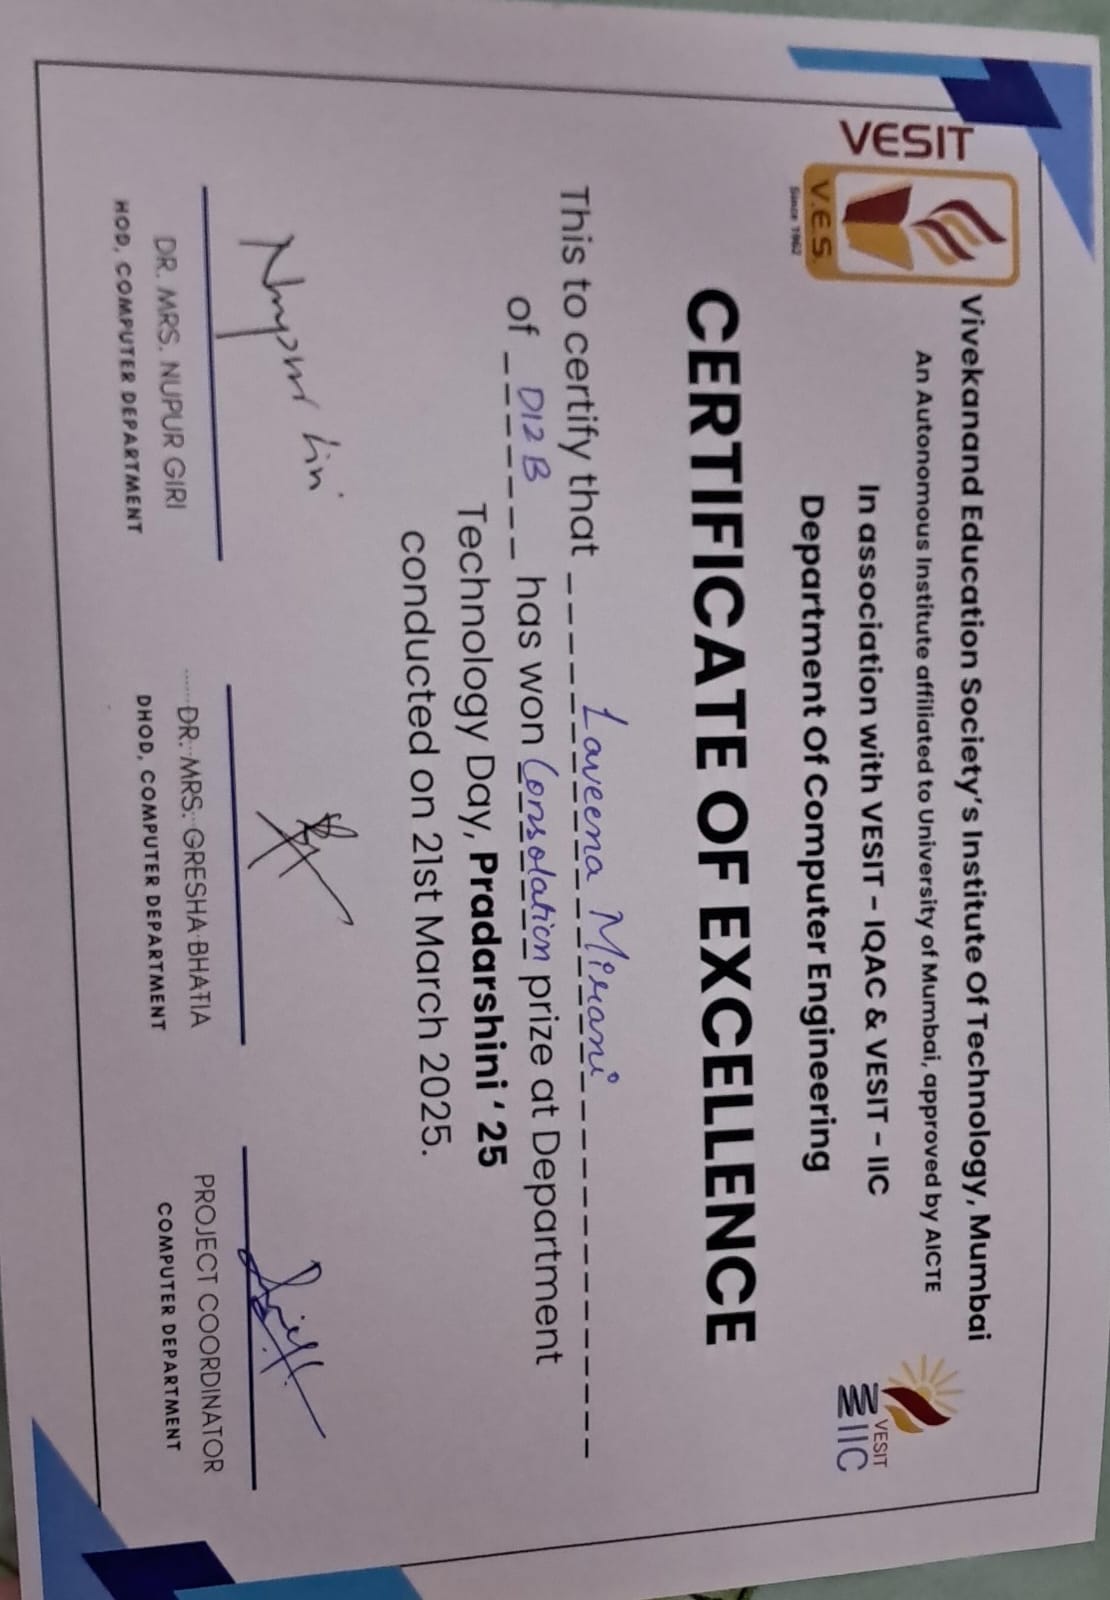 VESIT
V.E.S.
Since 1962
Vivekanand Education Society's Institute Of Technology, Mumbai
An Autonomous Institute affiliated to University of Mumbai, approved by AICTE
In association with VESIT - IQAC & VESIT - IIC
Department Of Computer Engineering
VESIT
IIC
CERTIFICATE OF EXCELLENCE
This to certify that Laveena Mirani
of D12B has won Consolation prize at Department
Technology Day, Pradarshini '25
conducted on 21st March 2025.
DR. MRS. NUPUR GIRI
HOD, COMPUTER DEPARTMENT
DR. MRS. GRESHA BHATIA
DHOD, COMPUTER DEPARTMENT
PROJECT COORDINATOR
COMPUTER DEPARTMENT